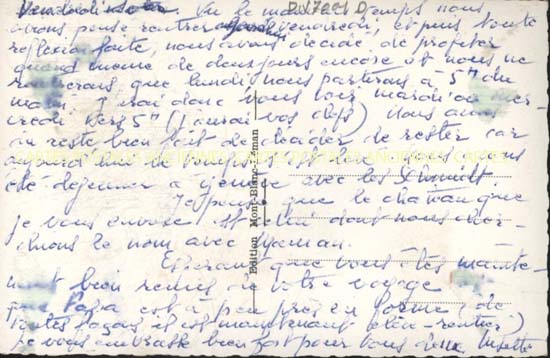 Vendredi soir Vu le mauvais temps nous
avons pensé rentrer vendredi, et puis toute
reflexion faite, nous avons décidé, de profiter
quand même de deux jours encore et nous ne
rentrerons que lundi nous partirons à 5h du
matin. J'irai donc vous voir mardi ou mer-
credi vers 5h (J'aurai vos clefs) Nous avons
du reste bien fait de décider de rester car
aujourd'hui le temps nous
été déjeuner à avec les Schmidt.
Je pense que le château que
je vous envoie est celui dont nous cher-
chions le nom avec
Espérant que vous êtes mainte-
nant bien remis de votre voyage
que Papa est à peu près en forme (de
toutes façons il est maintenant
Je vous embrasse bien fort pour vous deux
Edition Mont-Blanc